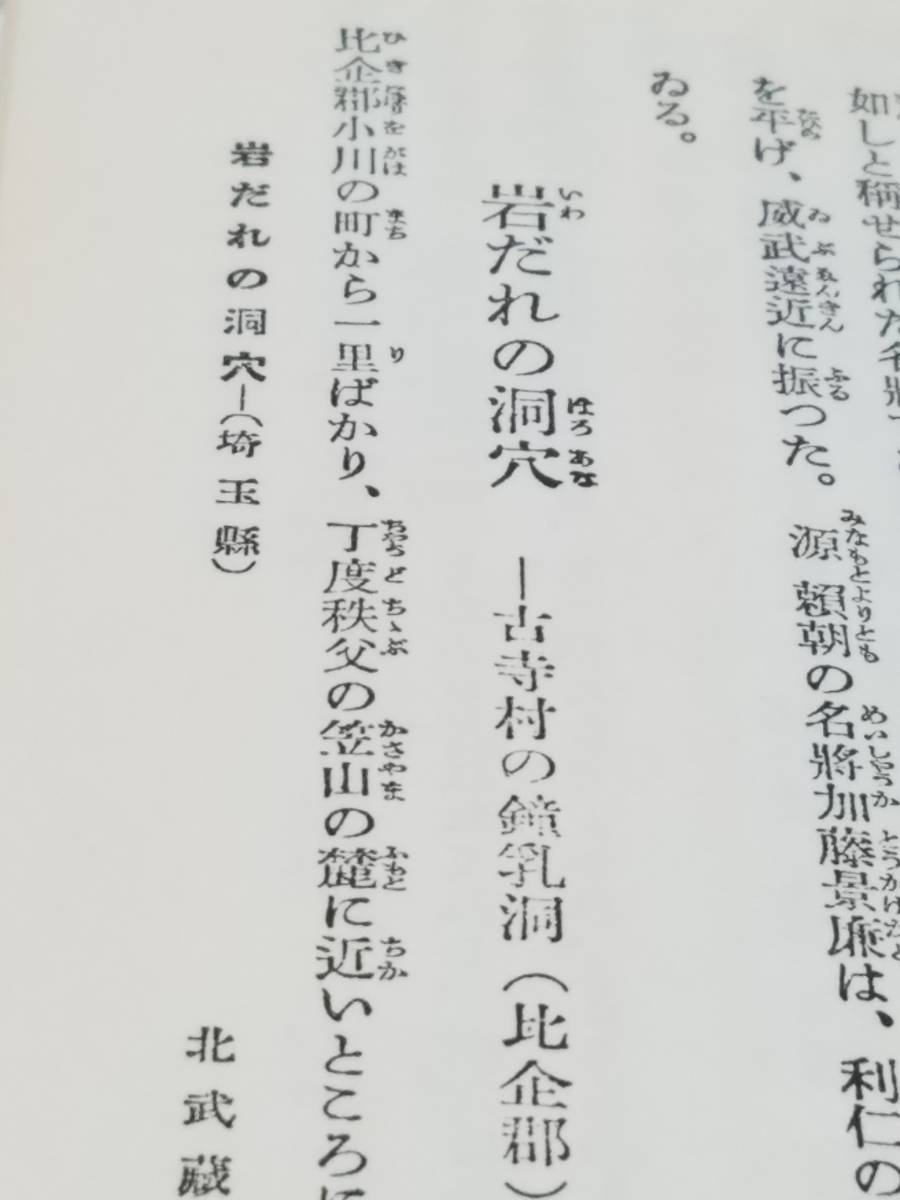 如しと稱せられた名將
を平げ、威武遠近に振つた。源頼朝の名將加藤景廉は、利仁の
ゐる。
岩だれの洞穴 —古寺村の鐘乳洞(比企郡)
比企郡小川の町から一里ばかり、丁度秩父の笠山の麓に近いところに
岩だれの洞穴—(埼玉縣)
北武蔵